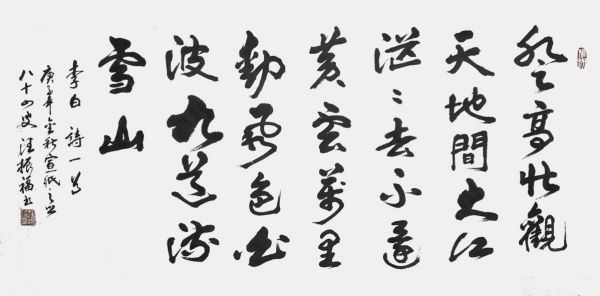 登高壯觀
天地間大江
茫〻去不還
黃雲萬里
動風色白
波九道流
雪山
李白詩一首
庚子金秋宣紙之
八十四叟汪振福书